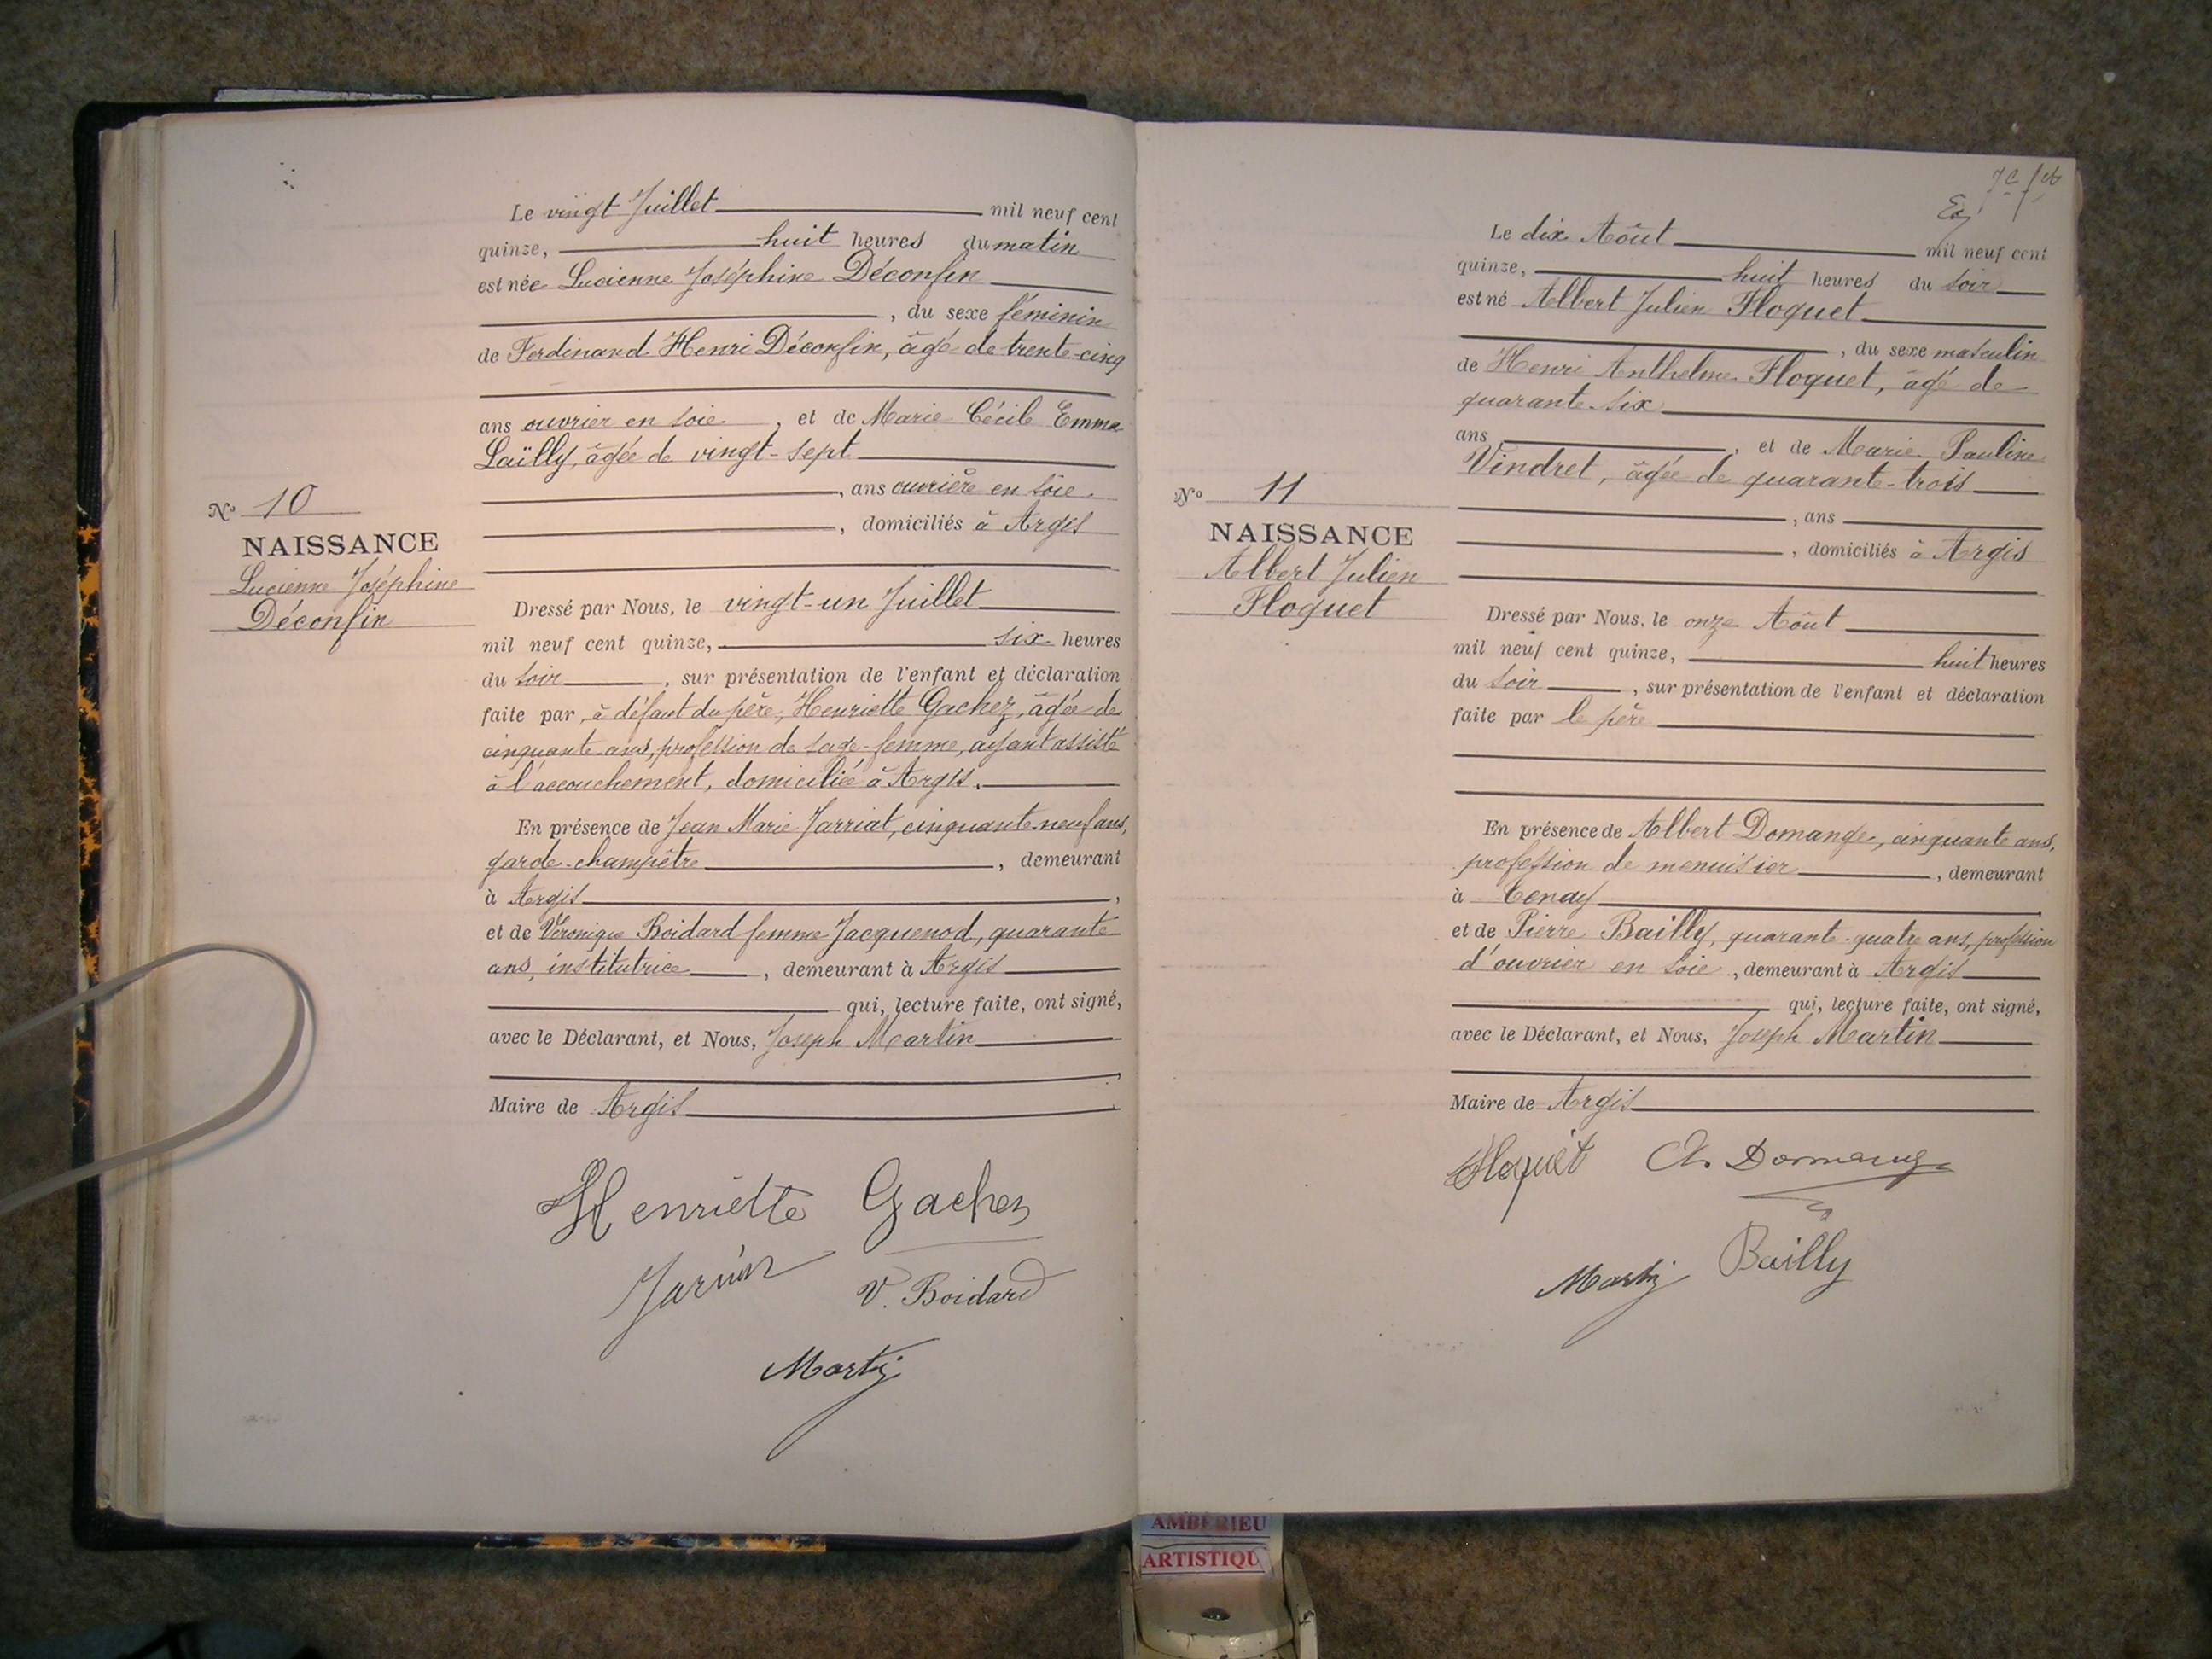 Le vingt Juillet mil neuf cent
quinze, huit heures du matin
est née Lucienne Joséphine Déconfin
, du sexe féminin
de Ferdinand Henri Déconfin, âgé de trente-cinq
ans ouvrier en soie , et de Marie Cécile Emma
Laïlly, âgée de vingt-sept
, ans ouvrière en soie.
, domiciliés à Argis
No 10
NAISSANCE
Lucienne Joséphine
Déconfin
Dressé par Nous, le vingt-un Juillet
mil neuf cent quinze, six heures
du soir , sur présentation de l'enfant et déclaration
faite par, à défaut du père, Henriette Gachez, âgée de
cinquante ans, profession de sage-femme, ayant assisté
à l'accouchement, domiciliée à Argis.
En présence de Jean Marie Jarriat, cinquante-neuf ans,
garde-champêtre , demeurant
à Argis ,
et de Véronique Boidard femme Jacquenod, quarante
ans, institutrice , demeurant à Argis
qui, lecture faite, ont signé,
avec le Déclarant, et Nous, Joseph Martin
Maire de Argis
Henriette Gachez
V. Boidard
Martin
Le dix Août mil neuf cent
quinze, huit heures du soir
est né Albert Julien Floquet
, du sexe masculin
de Henri Anthelme Floquet, âgé de
quarante six
ans , et de Marie Pauline
Vindret, âgée de quarante-trois
, ans
, domiciliés à Argis
No 11
NAISSANCE
Albert Julien
Floquet
Dressé par Nous, le onze Août
mil neuf cent quinze, huit heures
du soir , sur présentation de l'enfant et déclaration
faite par le père
En présence de Albert Domange, cinquante ans,
profession de menuisier , demeurant
à Tenay
et de Pierre Bailly, quarante-quatre ans, profession
d'ouvrier en soie , demeurant à Argis
qui, lecture faite, ont signé,
avec le Déclarant, et Nous, Joseph Martin
Maire de Argis
Floquet Domange
Martin Bailly
AMBÉRIEU
ARTISTIQU